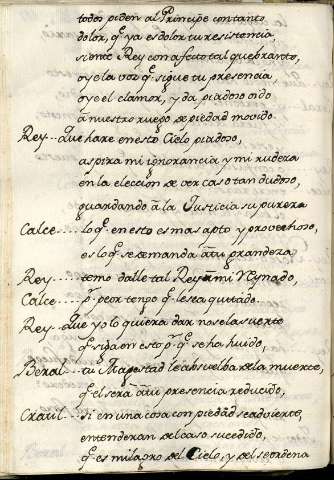 todos piden al Principe con tanto
dolor, q̃ ya es dolor tu resistencia
siente Rey con afecto tal quebranto,
oye la voz q̃ sigue tu presencia,
oye el clamor, y da piadoso oido
a nuestro ruego de piedad movido.
Rey .. que hare en esto Cielo piadoso,
aspira mi ignorancia y mi rudeza
en la eleccion de ver caso tan dudoso,
guardando a la Justicia su pureza
Calce .... lo q̃ en esto es mas apto y provechoso,
es lo q̃ se demanda a tu grandeza
Rey .... temo dalle tal Rey a mi Reynado,
Calce .... p.r peor tengo q̃ le sea quitado.
Rey .. que yo lo quiera dar no se la suerte
q̃ siga en esto p.r q̃ se ha huido,
Beral .. tu Magestad le absuelba de la muerte,
q̃ el sera a tu presencia reducido,
Cratil .... si en una cosa con piedad se advierte,
entenderan del caso sucedido,
q̃ es milagro del Cielo, y del se ordena